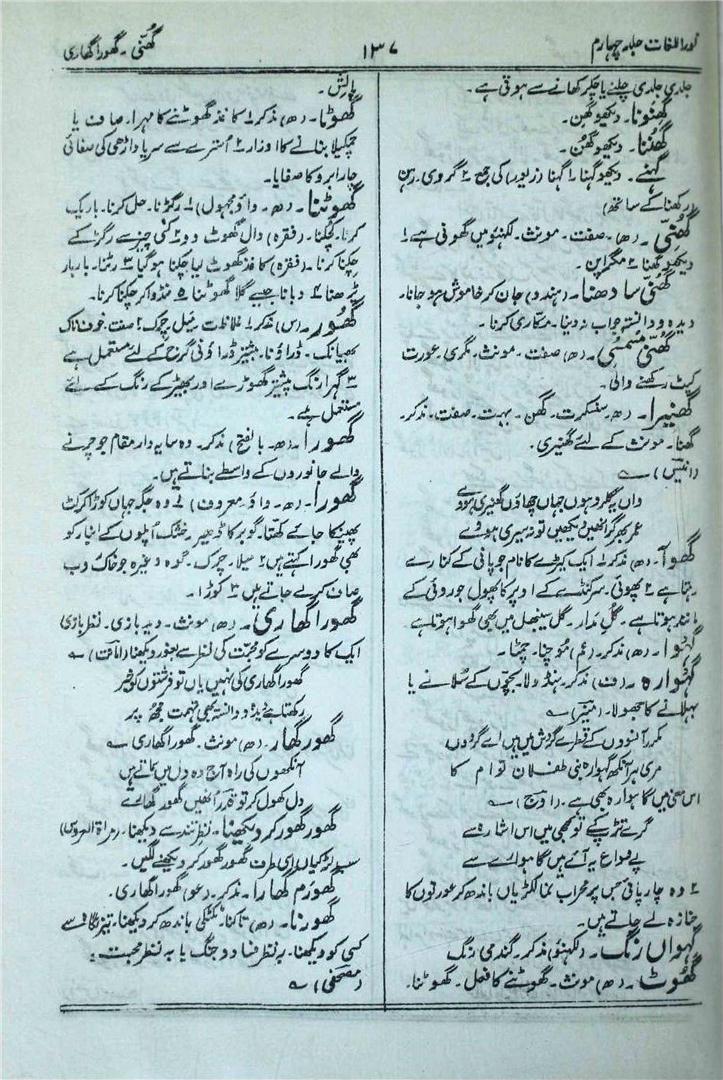 نوراللغات جلد چہارم
۱۳۷
گھنّی ۔ گھورا گھاری
جلدی جلدی چلنے یا چکر کھانے سے ہوتی ہے ۔
گھِنَونا ۔ دیکھو گھِن ۔
گھُننا ۔ دیکھو گھُن ۔
گہنے ۔ دیکھو گہنا ۱ گہنا (زیور) کی جمع ۲ گروی ۔ رہن
(رکھنا کے ساتھ)
گھُنّی ۔ (ھ) ۔ صفت ۔ مونث ۔ لکھنؤ میں گھونی ہے ۱
دیکھو گھنا ۲ مگراپن ۔
گھُنّی سادھنا ۔ (ہندو) جان کر خاموش ہو جانا ۔
دیدہ و دانستہ جواب نہ دینا ۔ مکّاری کرنا ۔
گھُنّی مُسمُسی ۔ (ھ) صفت ۔ مونث ۔ مگری ۔ عورت
کپٹ رکھنے والی ۔
گھنیرا ۔ (ھ ۔ سنسکرت ۔ گھن ۔ بہت ۔ صفت ۔ مذکر ۔
گھنا ۔ مونث کے لئے گھنیری ۔
(انیس) ؎
واں پہ چلو ہوں جہاں چھاؤں گھنیری ہووے
عمر بھر گر انھیں دیکھیں تو نہ سیری ہووے
گھوآ ۔ (ھ) مذکر ۱ ایک کیڑے کا نام جو پانی کے کنارے
رہتا ہے ۲ پھونی ۔ سرکنڈے کے اوپر کا پھول جو روئی کے
مانند ہوتا ہے ۔ گلِ مدار ۔ گل سینبھل میں بھی گھوا ہوتا ہے ۔
گہُوا ۔ (ھ) مذکر ۔ (عم) مُوچنا ۔ چمٹا ۔
گہوارہ ۔ (ف) مذکر ۔ ہنڈولا ۔ بچّوں کے سُلانے یا
بہلانے کا جھولا ۔ (منیر) ؎
مکرر آنسوں کے قطرے گردش میں ہیں اے گردوں
مری ہر آنکھ گہوارہ بنی طفلان توام کا
اس معنی میں گاہوارہ بھی ہے ۔ (اوج) ؎
گرے تڑپ کے تو کبھی ہیں اس اشارہ سے
پے وداع یہ آئے ہیں گاہوارے سے
۲ وہ چارپائی جس پر محراب نما لکڑیاں باندھ کر عورتوں کا
جنازہ لے جاتے ہیں ۔
گہواں رنگ ۔ (لکھنؤ) مذکر ۔ گندمی رنگ
گھُوٹ ۔ (ھ) مونث ۔ گھوٹنے کا فعل ۔ گھوٹنا ۔
پالش ۔
گھوٹا ۔ (ھ) مذکر ۱ کاغذ گھوٹنے کا مہرا ۔ صاف یا
چمکیلا بنانے کا اوزار ۲ اُسترے سے سر یا داڑھی کی صفائی
چار ابرو کا صفایا ۔
گھوٹنا ۔ (ھ ۔ واؤ مجہول) ۱ رگڑنا ۔ حل کرنا ۔ باریک
کرنا ۔ کچلنا ۔ (فقرہ) دال گھوٹ دو ۲ کسی چیز سے رگڑ کے
چکنا کرنا ۔ (فقرہ) کاغذ گھوٹ لیا چکنا ہو گیا ۳ رٹنا ۔ بار بار
پڑھنا ۴ دبانا جیسے گلا گھوٹنا ۵ مُنڈوا کر چکنا کرنا ۔
گھور ۔ (س) مذکر ۱ غلاظت ۔ میل ۔ چرک ۲ صفت ۔ خوفناک
بھیانک ۔ ڈراؤنا ۔ بیشتر ڈراؤنی گرج کے لئے مستعمل ہے
۳ گہرا رنگ بیشتر گھوڑے اور بھیڑ کے رنگ کے لئے
مستعمل ہے ۔
گھورا ۔ (ھ ۔ بالفتح) مذکر ۔ وہ سایہ دار مقام جو چرنے
والے جانوروں کے واسطے بناتے ہیں ۔
گھورا ۔ (ھ ۔ واؤ معروف) ۱ وہ جگہ جہاں کوڑا کرکٹ
پھینکا جائے کھتا ۔ گوبر کا ڈھیر ۔ خشک اُپلوں کے انبار کو
بھی گھورا کہتے ہیں ۲ میلا ۔ چرک ۔ گوہ وغیرہ جو خاکروب
صاف کر لے جاتے ہیں ۳ کوڑا ۔
گھورا گھاری ۔ (ھ) مونث ۔ دید بازی ۔ نظر بازی
ایک کا دوسرے کو محبّت کی نظر سے بغور دیکھنا (امانت) ؎
گھورا گھاری کی نہیں یاں تو فرشتوں کو خبر
رکھتا ہے دیدہ و دانستہ یہی تہمت مجھ پر
گھور گھار ۔ (ھ) مونث ۔ گھورا گھاری ؎
آنکھوں کی راہ آج وہ دل میں سماتے ہیں
دل کھول کر تو قدر انھیں گھور گھار لے
گھور گھور کر دیکھنا ۔ نظر تند سے دیکھنا ۔ (مراۃ العروس)
سب لڑکیاں اسی طرف گھور گھور کر دیکھنے لگیں ۔
گھورم گھارا ۔ مذکر ۔ (عو) گھورا گھاری ۔
گھورنا ۔ (ھ) تاکنا ۔ ٹکٹکی باندھ کر دیکھنا ۔ تیز نگاہ سے
کسی کو دیکھنا ۔ بہ نظر فساد و جنگ یا بہ نظر محبت ۔
(مصحفی) ؎